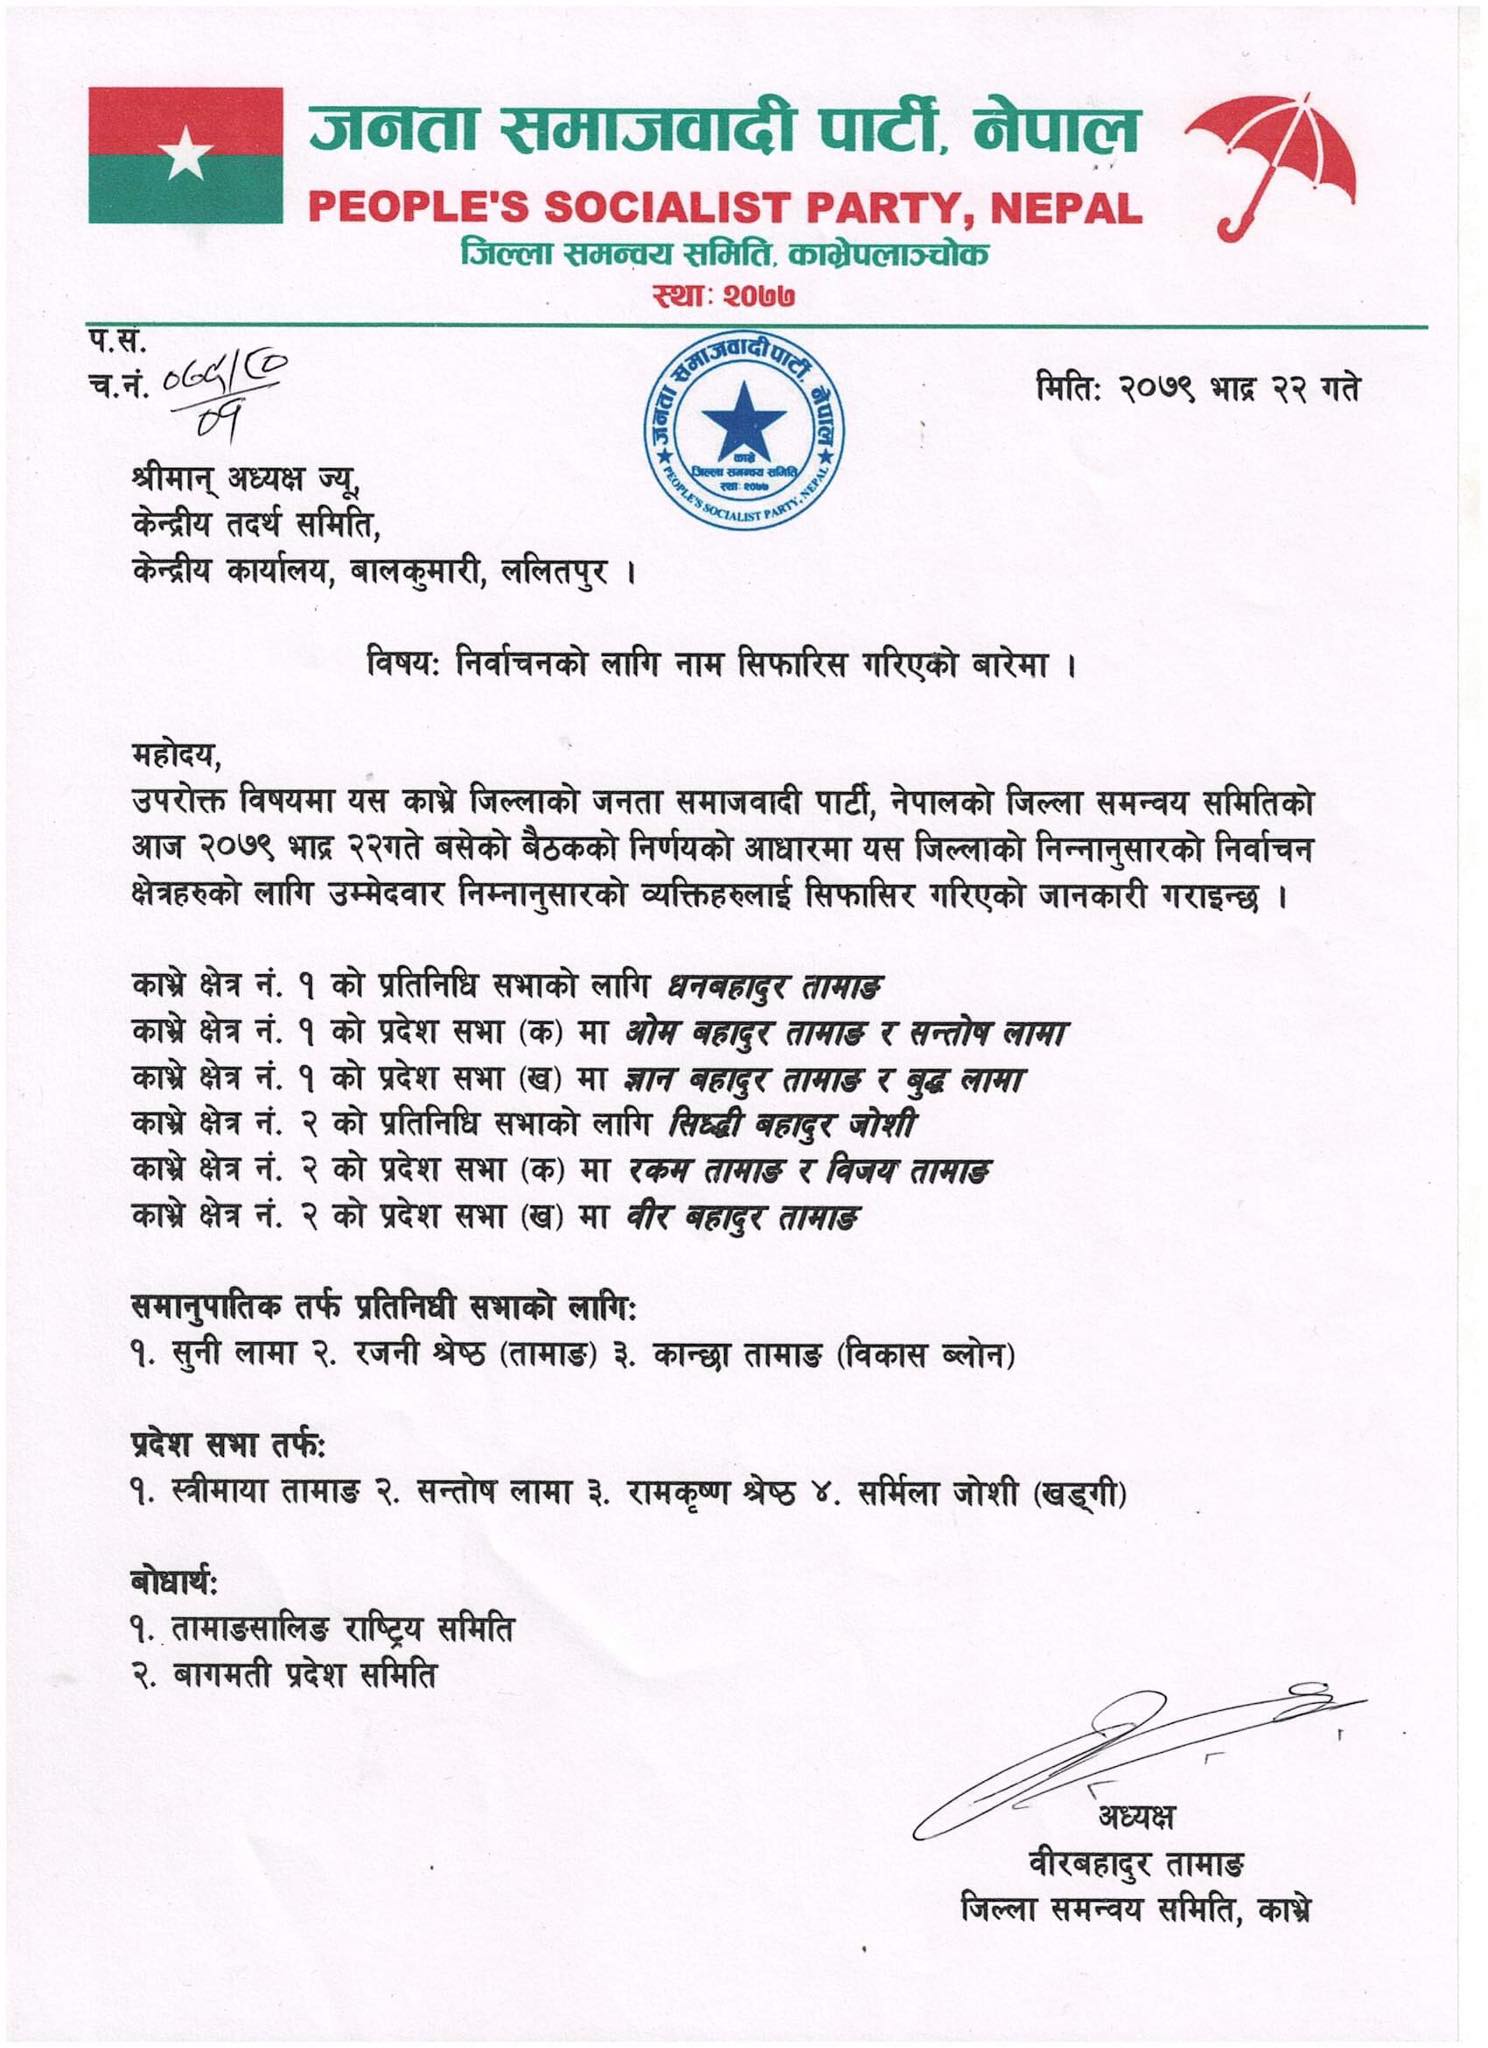 जनता समाजवादी पार्टी, नेपाल
PEOPLE'S SOCIALIST PARTY, NEPAL
जिल्ला समन्वय समिति, काभ्रेपलाञ्चोक
स्थाः २०७७
प.सं.
च.नं. ०७९/८०
०१
जनता समाजवादी पार्टी, नेपाल
काभ्रे
जिल्ला समन्वय समिति
स्थाः २०७७
PEOPLE'S SOCIALIST PARTY, NEPAL
मितिः २०७९ भाद्र २२ गते
श्रीमान् अध्यक्ष ज्यू,
केन्द्रीय तदर्थ समिति,
केन्द्रीय कार्यालय, बालकुमारी, ललितपुर ।
विषयः निर्वाचनको लागि नाम सिफारिस गरिएको बारेमा ।
महोदय,
उपरोक्त विषयमा यस काभ्रे जिल्लाको जनता समाजवादी पार्टी, नेपालको जिल्ला समन्वय समितिको
आज २०७९ भाद्र २२गते बसेको बैठकको निर्णयको आधारमा यस जिल्लाको निन्नानुसारको निर्वाचन
क्षेत्रहरुको लागि उम्मेदवार निम्नानुसारको व्यक्तिहरुलाई सिफासिर गरिएको जानकारी गराइन्छ ।
काभ्रे क्षेत्र नं. १ को प्रतिनिधि सभाको लागि धनबहादुर तामाङ
काभ्रे क्षेत्र नं. १ को प्रदेश सभा (क) मा ओम बहादुर तामाङ र सन्तोष लामा
काभ्रे क्षेत्र नं. १ को प्रदेश सभा (ख) मा ज्ञान बहादुर तामाङ र बुद्ध लामा
काभ्रे क्षेत्र नं. २ को प्रतिनिधि सभाको लागि सिध्द्धी बहादुर जोशी
काभ्रे क्षेत्र नं. २ को प्रदेश सभा (क) मा रकम तामाङ र विजय तामाङ
काभ्रे क्षेत्र नं. २ को प्रदेश सभा (ख) मा वीर बहादुर तामाङ
समानुपातिक तर्फ प्रतिनिधी सभाको लागिः
१. सुनी लामा २. रजनी श्रेष्ठ (तामाङ) ३. कान्छा तामाङ (विकास ब्लोन)
प्रदेश सभा तर्फः
१. स्त्रीमाया तामाङ २. सन्तोष लामा ३. रामकृष्ण श्रेष्ठ ४. सर्मिला जोशी (खड्गी)
बोधार्थः
१. तामाङसालिङ राष्ट्रिय समिति
२. बागमती प्रदेश समिति
अध्यक्ष
वीरबहादुर तामाङ
जिल्ला समन्वय समिति, काभ्रे